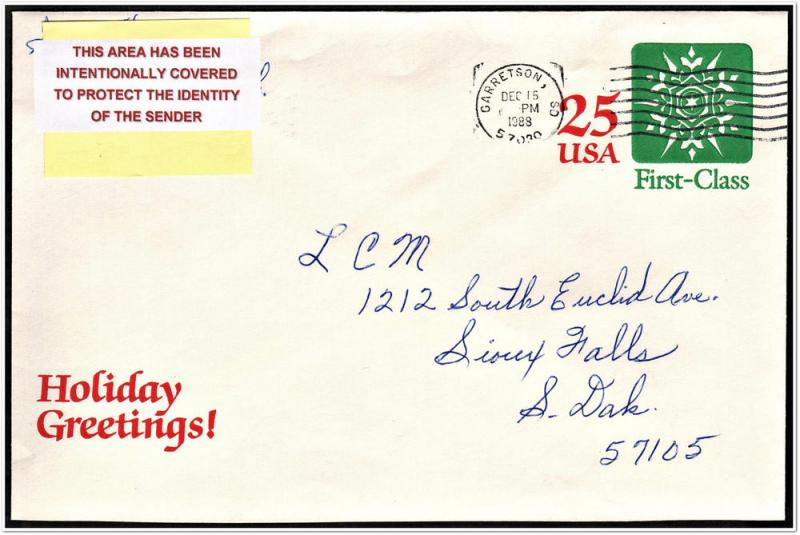 THIS AREA HAS BEEN
INTENTIONALLY COVERED
TO PROTECT THE IDENTITY
OF THE SENDER
GARRETSON, SD
DEC 16
PM
1988
57030
25
USA
First-Class
L C M
1212 South Euclid Ave.
Sioux Falls
S. Dak.
57105
Holiday
Greetings!